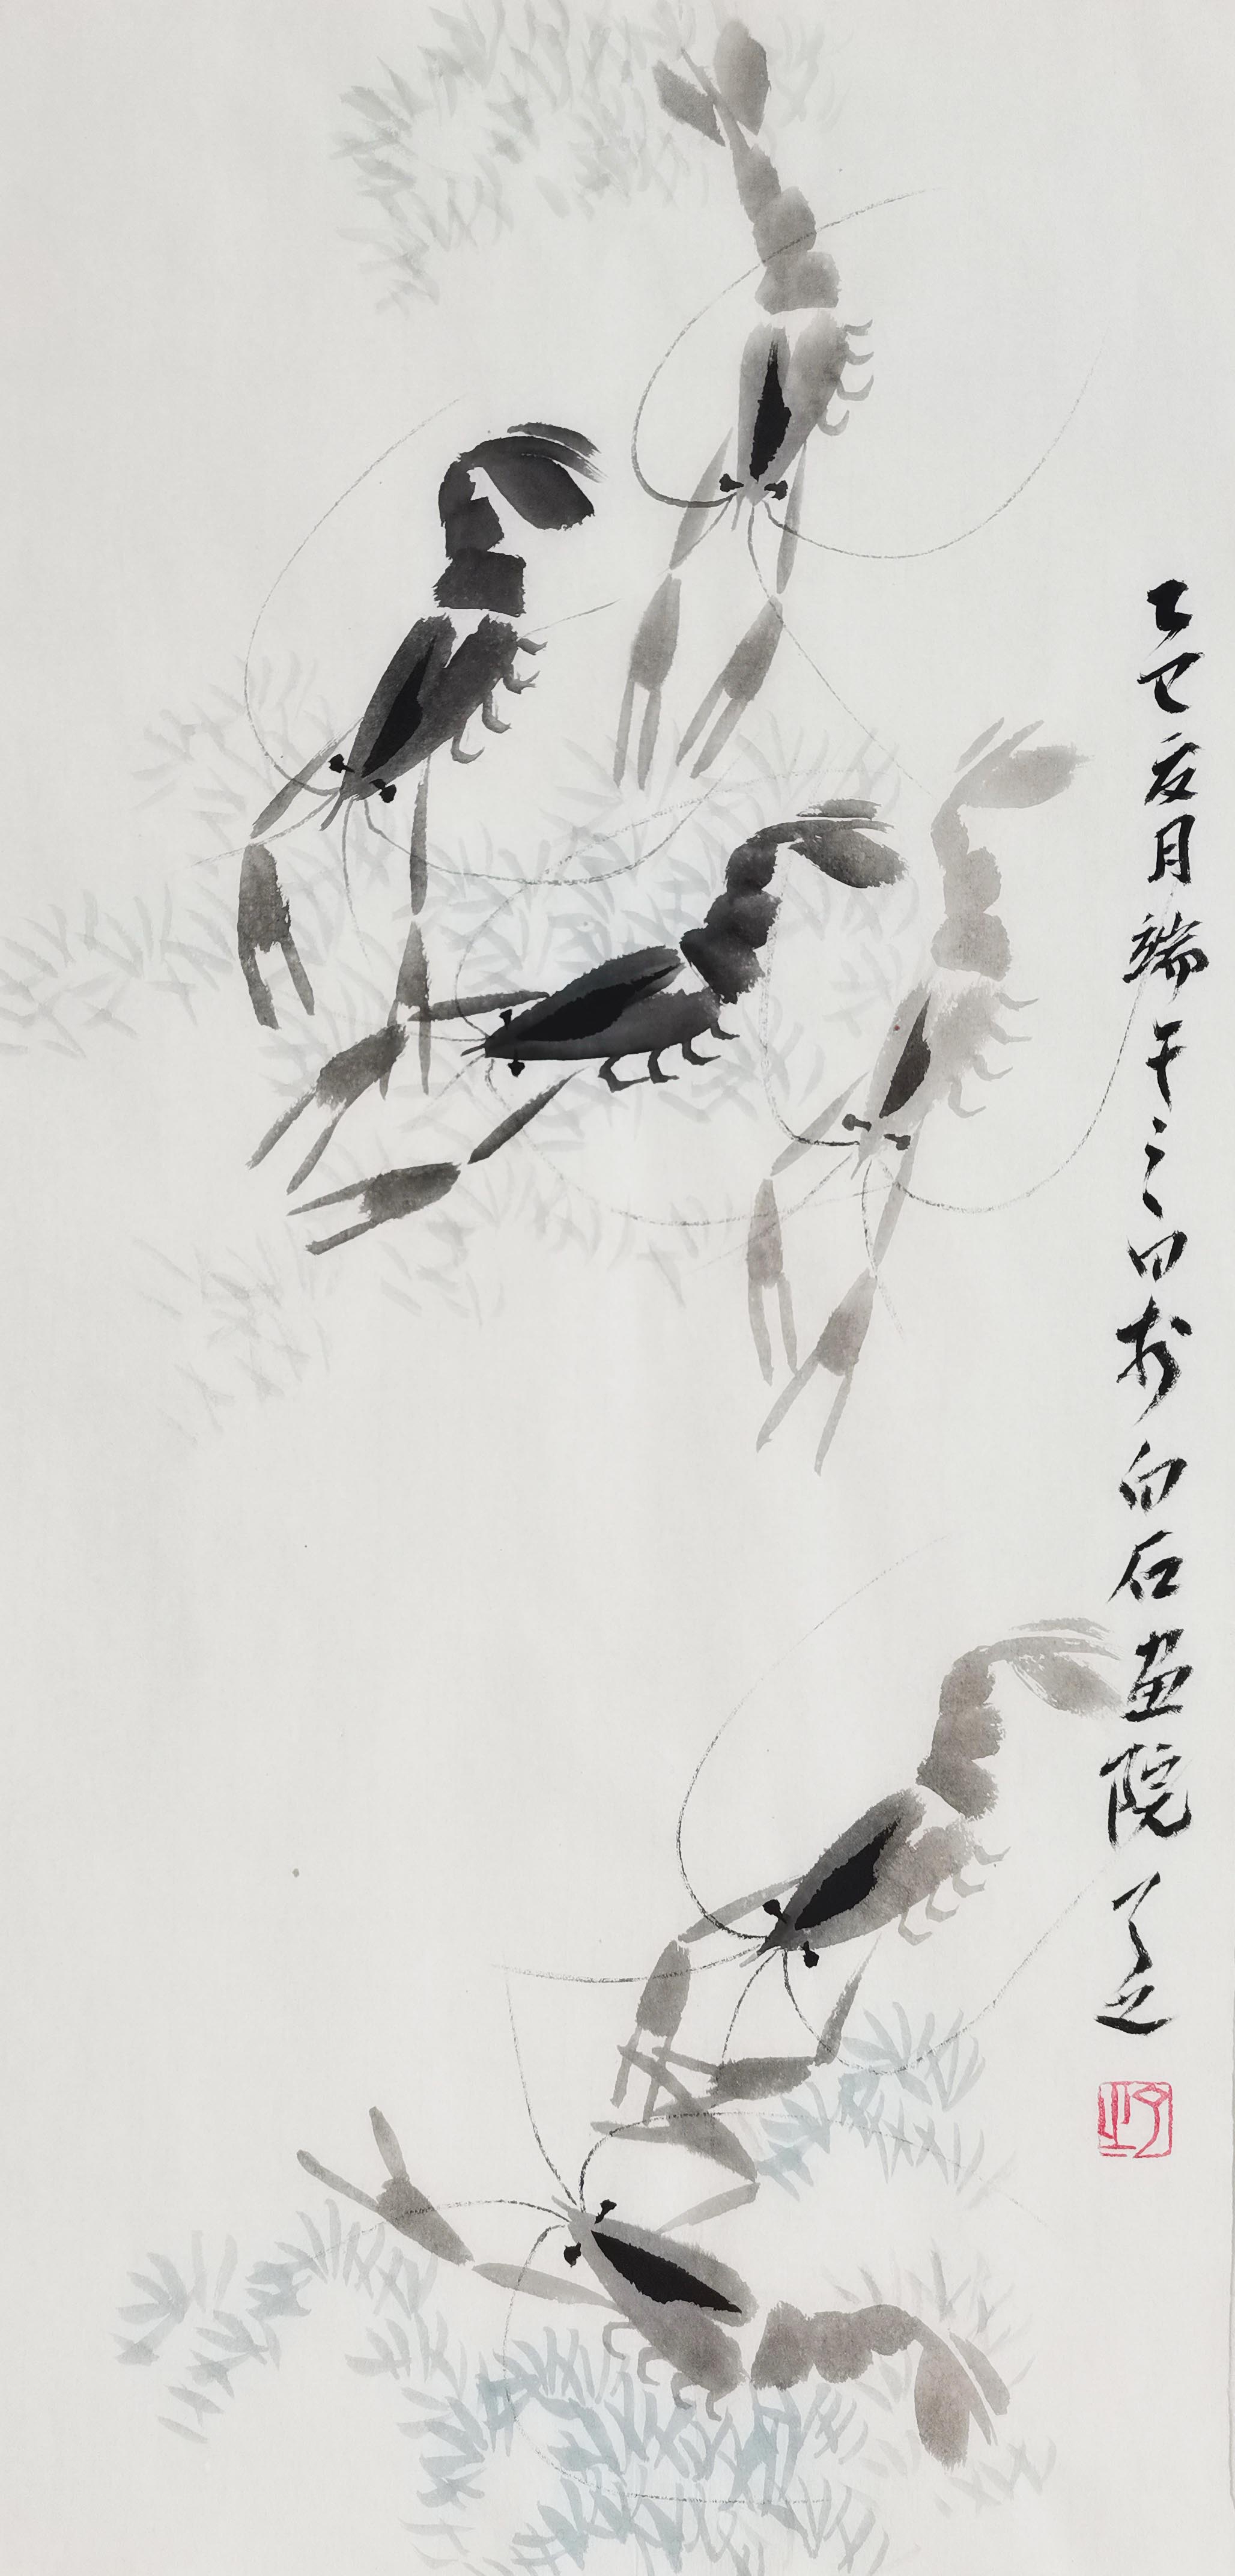 乙巳夏月端午之日於白石畫院了之